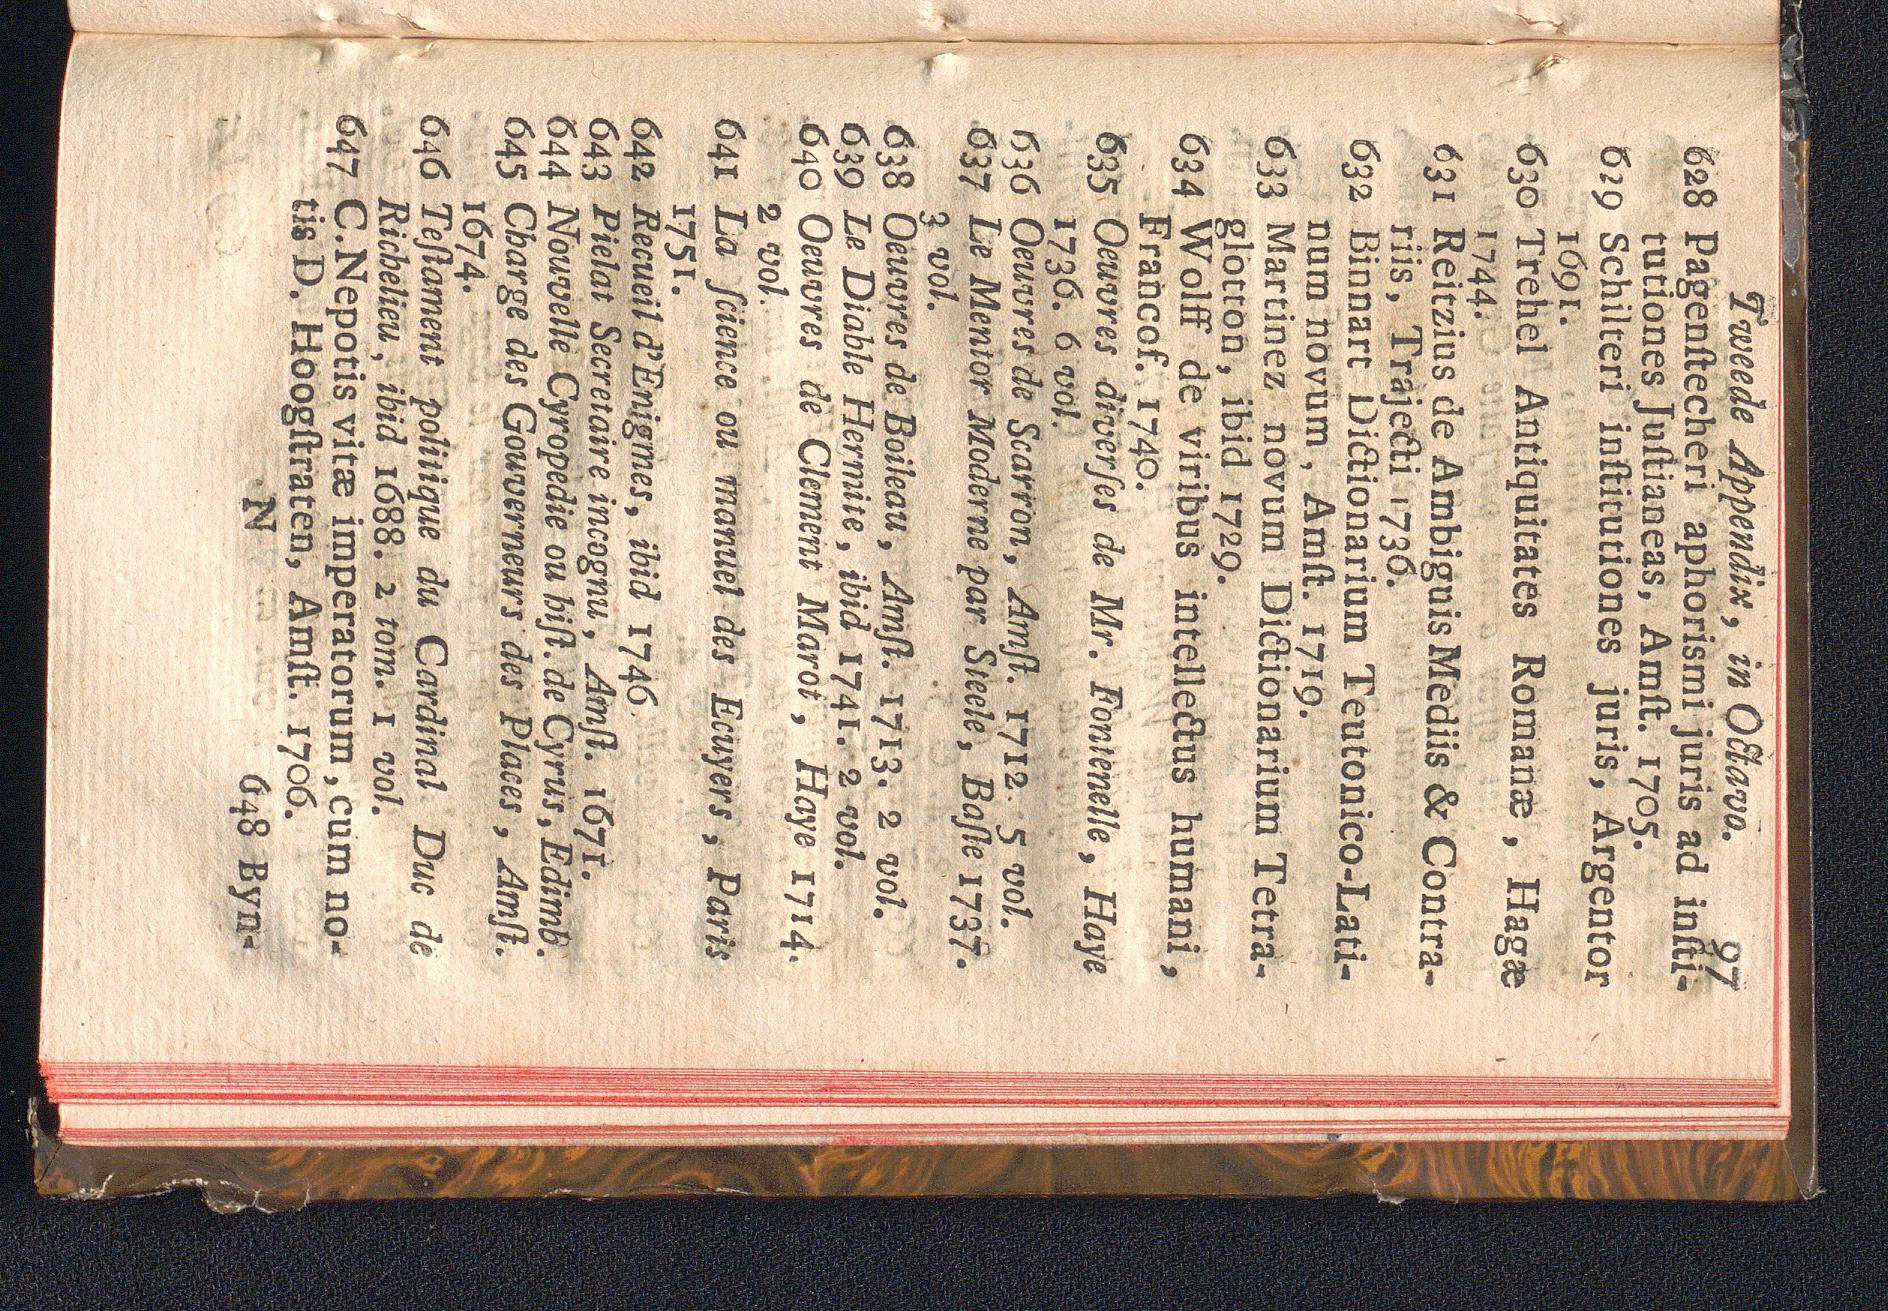 Tweede Appendix, in Octavo. 97
628 Pagenſtecheri aphorismi juris ad inſti-
tutiones Juſtianeas, Amſt. 1705.
629 Schilteri inſtitutiones juris, Argentor
1691.
630 Trehel Antiquitates Romanæ, Hagæ
1744.
631 Reitzius de Ambiguis Mediis & Contra-
riis, Trajecti 1736.
632 Binnart Dictionarium Teutonico-Lati-
num novum, Amſt. 1719.
633 Martinez novum Dictionarium Tetra-
glotton, ibid 1729.
634 Wolff de viribus intellectus humani,
Francof. 1740.
635 Oeuvres diverſes de Mr. Fontenelle, Haye
1736. 6 vol.
636 Oeuvres de Scarron, Amſt. 1712 5 vol.
637 Le Mentor Moderne par Steele, Baſle 1737.
3 vol.
638 Oeuvres de Boileau, Amſt. 1713. 2 vol.
639 Le Diable Hermite, ibid 1741. 2 vol.
640 Oeuvres de Clement Marot, Haye 1714.
2 vol.
641 La ſcience ou manuel des Ecuyers, Paris
1751.
642 Recueil d'Enigmes, ibid 1746
643 Pielat Secretaire incognu, Amſt. 1671.
644 Nouvelle Cyropedie ou hiſt. de Cyrus, Edimb.
645 Charge des Gouverneurs des Places, Amſt.
1674.
646 Teſtament politique du Cardinal Duc de
Richelieu, ibid 1688. 2 tom. 1 vol.
647 C. Nepotis vitæ imperatorum, cum no-
tis D. Hoogſtraten, Amſt. 1706.
N 648 Byn-